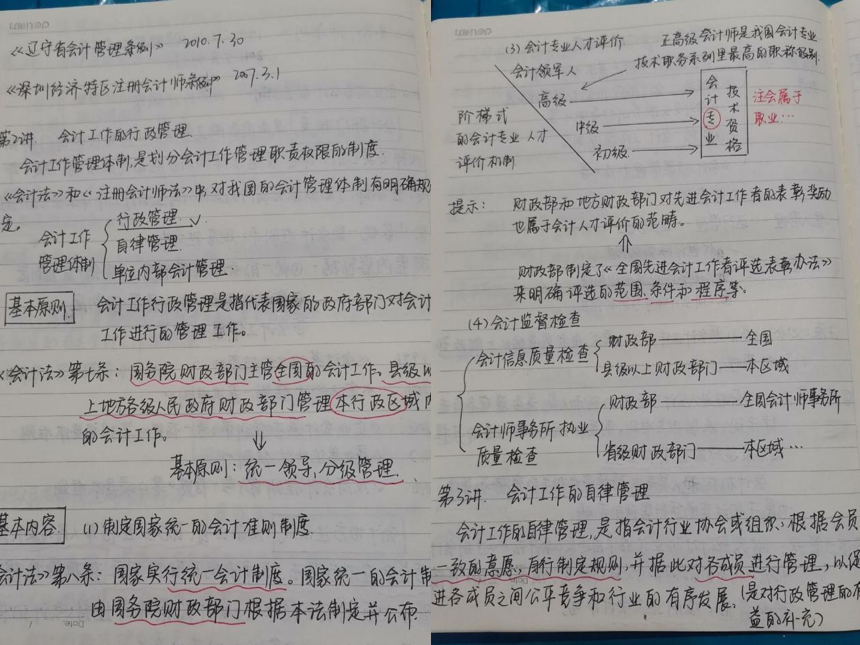 《辽宁省会计管理条例》 2010.7.30
《深圳经济特区注册会计师条例》 2007.3.1
第2讲 会计工作的行政管理
会计工作管理体制,是划分会计工作管理职责权限的制度
《会计法》和《注册会计师法》中,对我国的会计管理体制有明确规
定。
会计工作
管理体制
行政管理
自律管理
单位内部会计管理
基本原则 会计工作行政管理是指代表国家的政府部门对会计
工作进行的管理工作。
《会计法》第七条:国务院财政部门主管全国的会计工作。县级以
上地方各级人民政府财政部门管理本行政区域内
的会计工作。
基本原则:统一领导,分级管理
基本内容 (1)制定国家统一的会计准则制度
会计法》第八条:国家实行统一会计制度。国家统一的会计制
由国务院财政部门根据本法制定并公布
(3)会计专业人才评价
正高级会计师是我国会计专业
技术职务系列里最高的职称级别
会计领军人
高级
中级
初级
阶梯式
的会计专业人才
评价机制
会计专业
技术资格
注会属于
职业…
提示: 财政部和地方财政部门对先进会计工作者的表彰奖励
也属于会计人才评价的范畴。
财政部制定了《全国先进会计工作者评选表彰办法》
来明确评选的范围、条件和程序等。
(4)会计监督检查
会计信息质量检查
财政部——全国
县级以上财政部门——本区域
会计师事务所执业
质量检查
财政部——全国会计师事务所
省级财政部门——本区域…
第3讲. 会计工作的自律管理
会计工作的自律管理,是指会计行业协会或组织,根据会员
一致的意愿,自行制定规则,并据此对各成员进行管理,以促
进各成员之间公平竞争和行业的有序发展.(是对行政管理的有
益的补充)